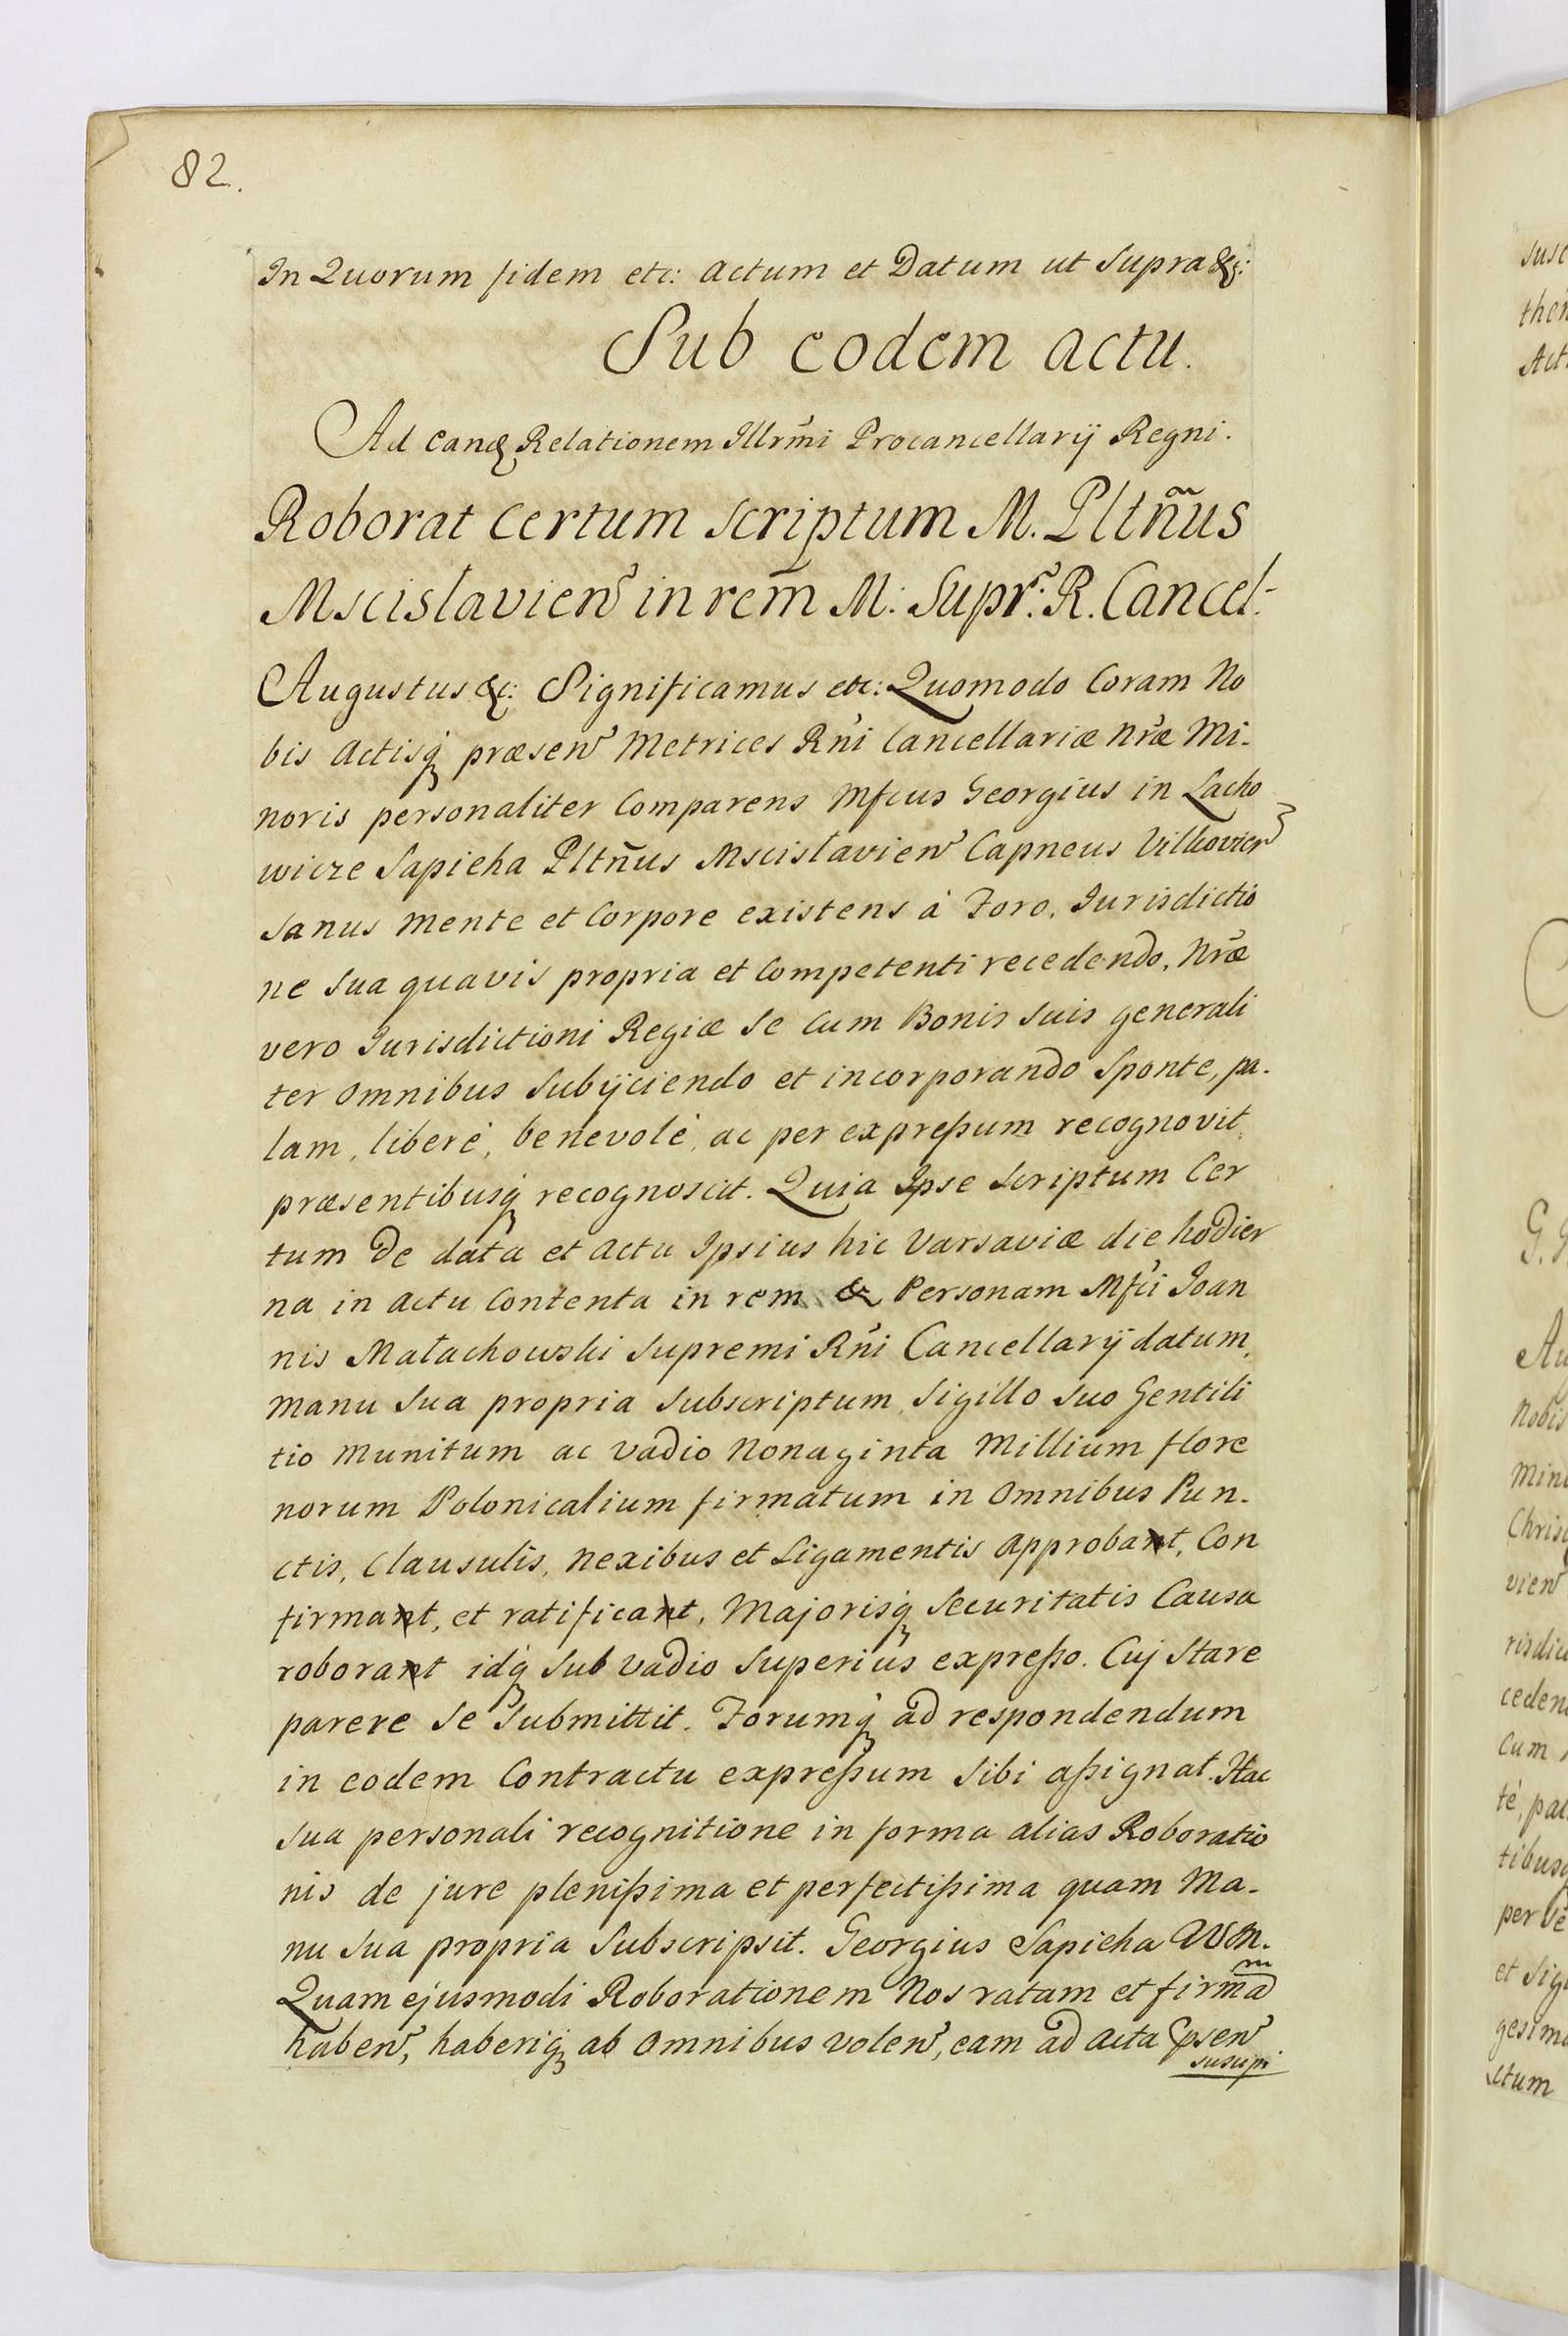 82.
In Quorum fidem etc: actum et Datum ut Supra &c:
Sub eodem actu.
Ad eandẽ Relationem Illrmĩ Procancellarij Regni.
Roborat certum scriptum M. Pltñus
Mscislavien̉ in rem̄ M: Supr̃: R. Cancel:
Augustus &c: Significamus etc: Quomodo Coram No
bis actisq̃ præsen̉ Metrices Rñi Cancellariæ Nr̃æ Mi-
noris personaliter Comparens Mfcus Georgius in Lacho
wicze Sapieha Pltñus Mscislavien̉ Capneus Vilkovien̉
Sanus mente et Corpore existens à Foro, Jurisdictio
ne sua quavis propria et Competenti recedendo, Nr̃æ
vero Jurisdictioni Regiæ Se Cum Bonis Suis generali
ter omnibus Subijciendo et incorporando Sponte, pa-
lam, liberé, benevolé, ac per expreßum recognovit,
præsentibusq̃ recognoscit. Quia Ipse Scriptum Cer
tum de data et actu Ipsius hic Varsaviæ die hodier
na in actu Contenta in rem & Personam Mfci Joan
nis Małachowski Supremi Rñi Cancellarij datum,
manu Sua propria Subscriptum, Sigillo Suo Gentili
tio Munitum ac vadio Nonaginta Millium flore
norum Polonicalium firmatum in omnibus Pun-
ctis, Clausulis, nexibus et Ligamentis approbant, Con
firmant, et ratificant, Majorisq̃ Securitatis Causa
roborant idq̃ Sub vadio Superius expreßo. Cuj Stare
parere Se Submittit. Forumq̃ ad respondendum
in eodem Contractu expreßum Sibi aßignat. Hac
Sua personali recognitione in forma alias Roboratio
nis de jure plenißima et perfectißima quam Ma-
nu Sua propria Subscripsit. Georgius Sapieha WM.
Quam ejusmodi Roborationem Nos ratam et firmam
haben̉, haberiq̃ ab omnibus volen̉, eam ad acta psen̉
suscipi